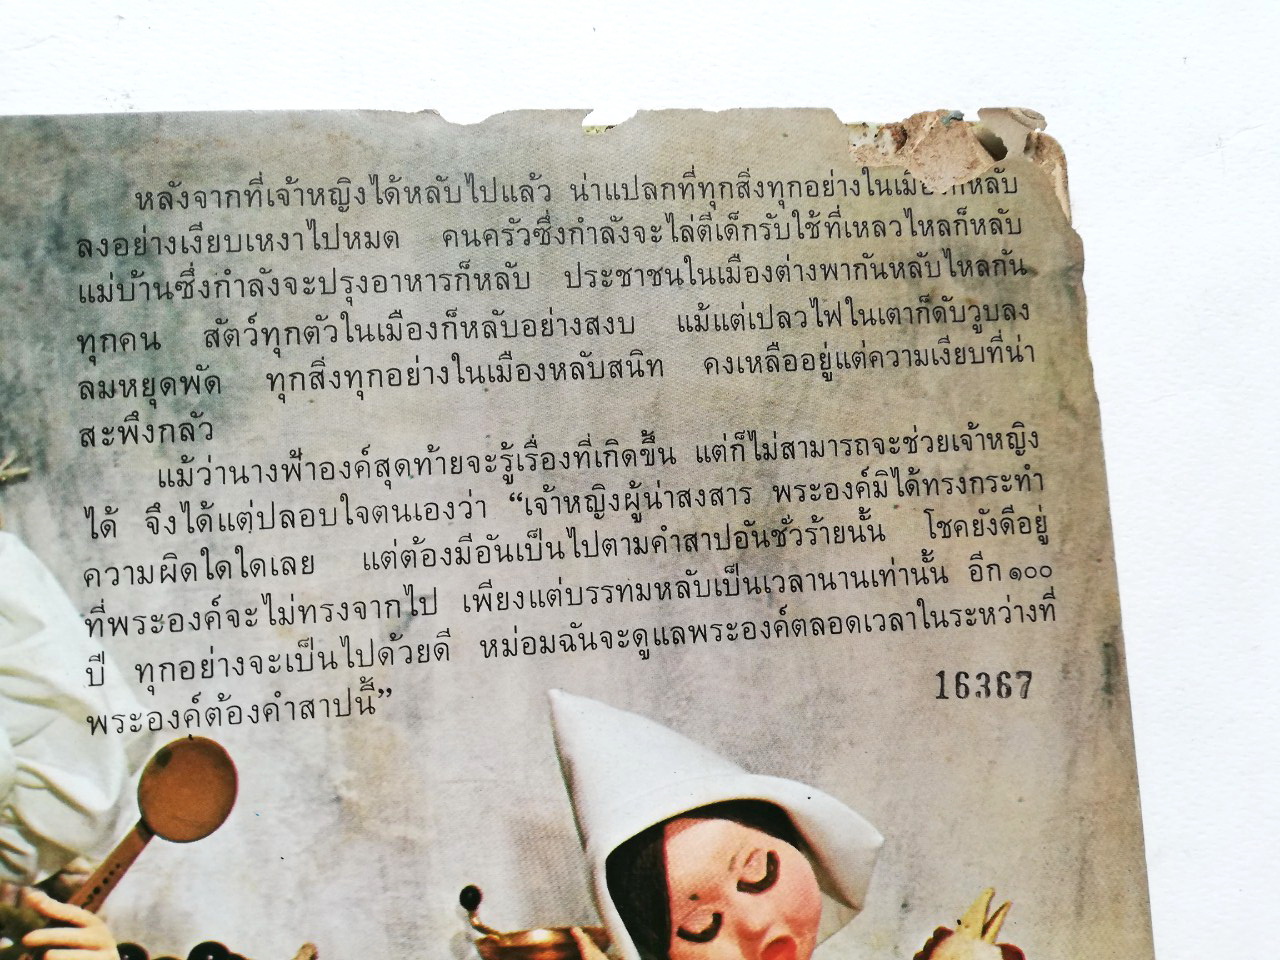 หลังจากที่เจ้าหญิงได้หลับไปแล้ว น่าแปลกที่ทุกสิ่งทุกอย่างในเมืองก็หลับ
ลงอย่างเงียบเหงาไปหมด คนครัวซึ่งกำลังจะไล่ตีเด็กรับใช้ที่เหลวไหลก็หลับ
แม่บ้านซึ่งกำลังจะปรุงอาหารก็หลับ ประชาชนในเมืองต่างพากันหลับไหลกัน
ทุกคน สัตว์ทุกตัวในเมืองก็หลับอย่างสงบ แม้แต่เปลวไฟในเตาก็ดับวูบลง
ลมหยุดพัด ทุกสิ่งทุกอย่างในเมืองหลับสนิท คงเหลืออยู่แต่ความเงียบที่น่า
สะพึงกลัว
แม้ว่านางฟ้าองค์สุดท้ายจะรู้เรื่องที่เกิดขึ้น แต่ก็ไม่สามารถจะช่วยเจ้าหญิง
ได้ จึงได้แต่ปลอบใจตนเองว่า “เจ้าหญิงผู้น่าสงสาร พระองค์มิได้ทรงกระทำ
ความผิดใดใดเลย แต่ต้องมีอันเป็นไปตามคำสาปอันชั่วร้ายนั้น โชคยังดีอยู่
ที่พระองค์จะไม่ทรงจากไป เพียงแต่บรรทมหลับเป็นเวลานานเท่านั้น อีก ๑๐๐
ปี ทุกอย่างจะเป็นไปด้วยดี หม่อมฉันจะดูแลพระองค์ตลอดเวลาในระหว่างที่
พระองค์ต้องคำสาปนี้”
16367